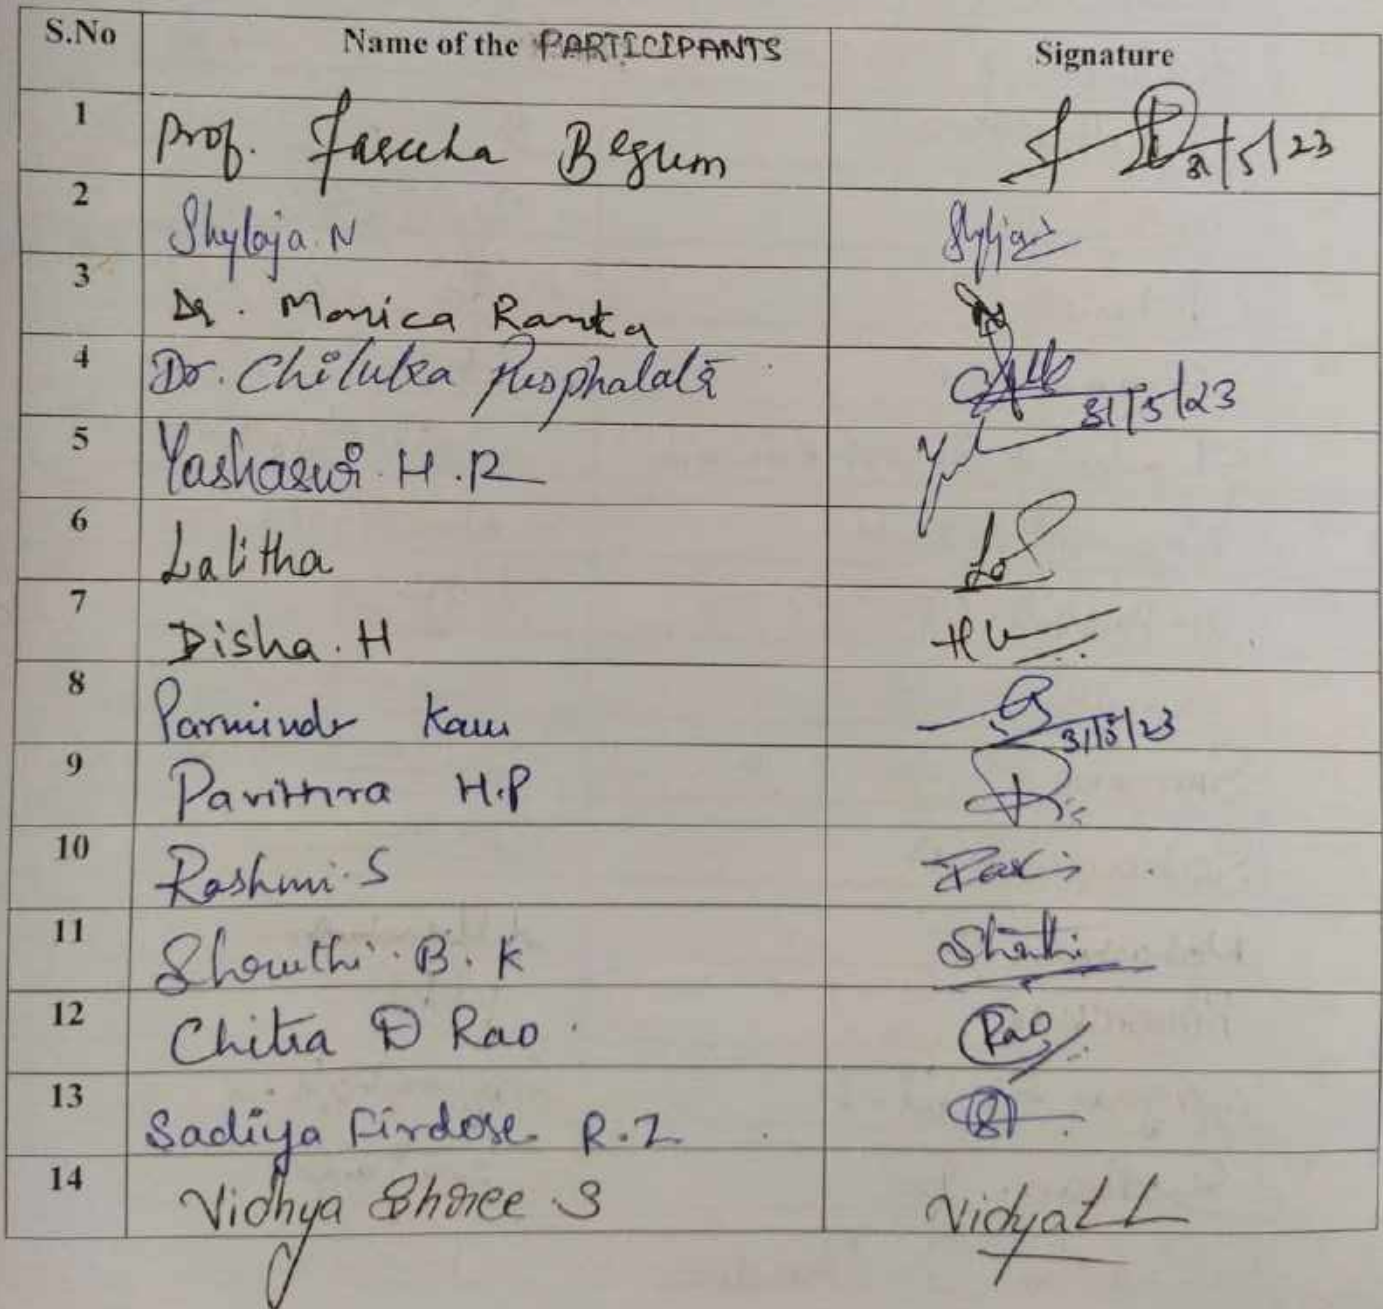 S.No Name of the PARTICIPANTS Signature
1 Prof. Faseeha Begum 31/5/23
2 Shylaja. N
3 Dr. Monica Ranka
4 Dr. Chiluka Pusphalata 31/5/23
5 Yashaswi. H.R
6 Lalitha
7 Disha. H
8 Parminder Kaur 31/5/23
9 Pavithra H.P
10 Rashmi. S
11 Shruthi. B. K
12 Chitra D Rao Rao
13 Sadiya Firdose R.Z
14 Vidhya Shree S